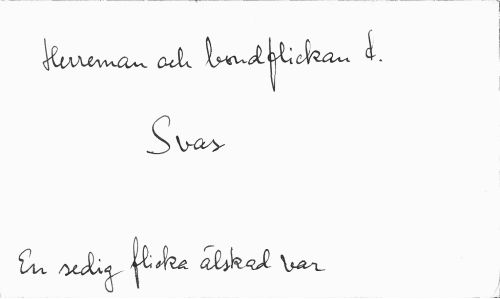 Herreman och bondflickan d.
Svas
En sedig flicka älskad var